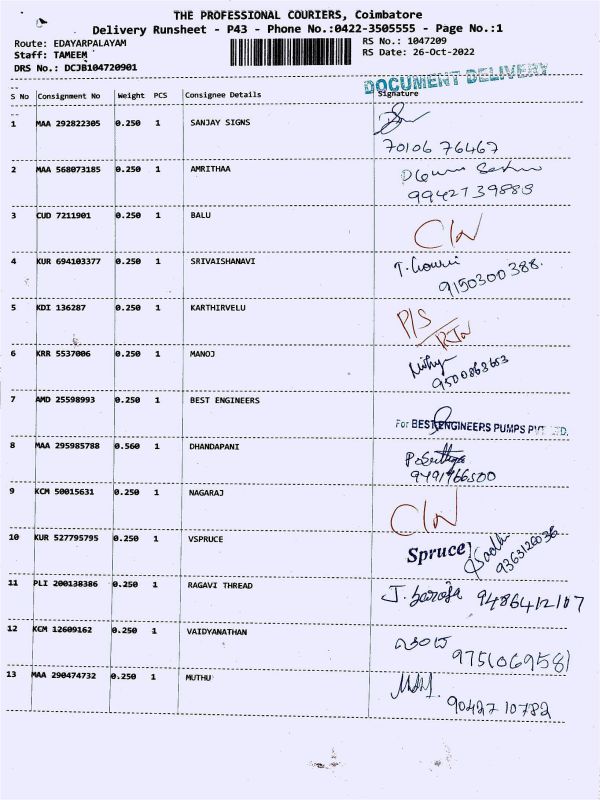 THE PROFESSIONAL COURIERS, Coimbatore
Delivery Runsheet - P43 - Phone No.:0422-3505555 - Page No.:1
Route: EDAYARPALAYAM RS No.: 1047209
Staff: TAMEEM RS Date: 26-Oct-2022
DRS No.: DCJB104720901
DOCUMENT DELIVERY
S No Consignment No Weight PCS Consignee Details Signature
1 MAA 292822305 0.250 1 SANJAY SIGNS
70106 76467
2 MAA 568073185 0.250 1 AMRITHAA
9942739888
3 CUD 7211901 0.250 1 BALU C/N
4 KUR 694103377 0.250 1 SRIVAISHANAVI T. Gowri
9150300388.
5 KDI 136287 0.250 1 KARTHIRVELU P/S
RTN
6 KRR 5537006 0.250 1 MANOJ Nithya
9500863653
7 AMD 25598993 0.250 1 BEST ENGINEERS
For BEST ENGINEERS PUMPS PVT. LTD.
8 MAA 295985788 0.560 1 DHANDAPANI
9491766500
9 KCM 50015631 0.250 1 NAGARAJ C/N
10 KUR 527795795 0.250 1 VSPRUCE Spruce
9363126036
11 PLI 200138386 0.250 1 RAGAVI THREAD J. Saroja 9486412107
12 KCM 12609162 0.250 1 VAIDYANATHAN
9751069581
13 MAA 290474732 0.250 1 MUTHU
90427 10782